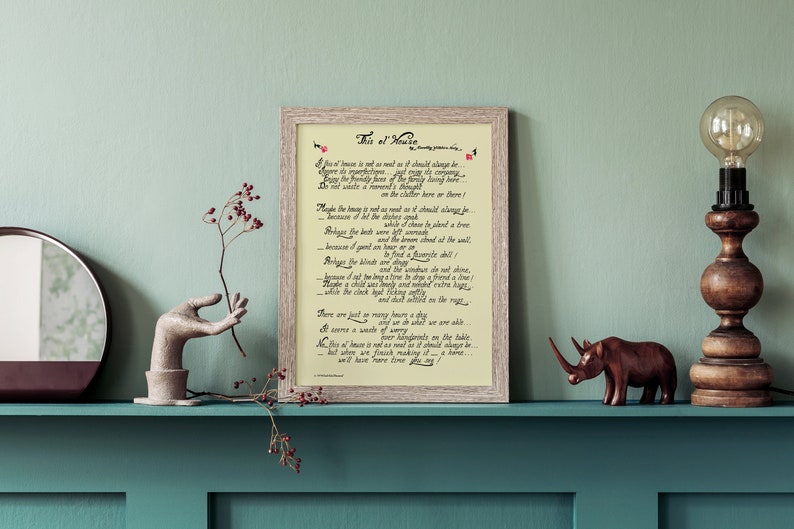 This ol' House
by Dorothy
If this ol' house is not as neat as it should always be...
Ignore its imperfections... just enjoy its company
Enjoy the friendly faces of the family living here...
Do not waste a moment's thought
on the clutter here or there!
Maybe the house is not as neat as it should always be...
_ because I let the dishes soak
while I chose to plant a tree.
Perhaps the beds were left unmade
and the broom stood at the wall,
_ because I spent an hour or so
to find a favorite doll!
Perhaps the blinds are dingy
and the windows do not shine,
_ because I sat too long a time to drop a friend a line!
Maybe a child was lonely and needed extra hugs
_ while the clock kept ticking softly
and dust settled on the rugs
There are just so many hours a day
and we do what we are able...
It seems a waste of worry
over handprints on the table.
No_ this ol' house is not as neat as it should always be...
_ but when we finish making it _ a home...
we'll have more time you see!